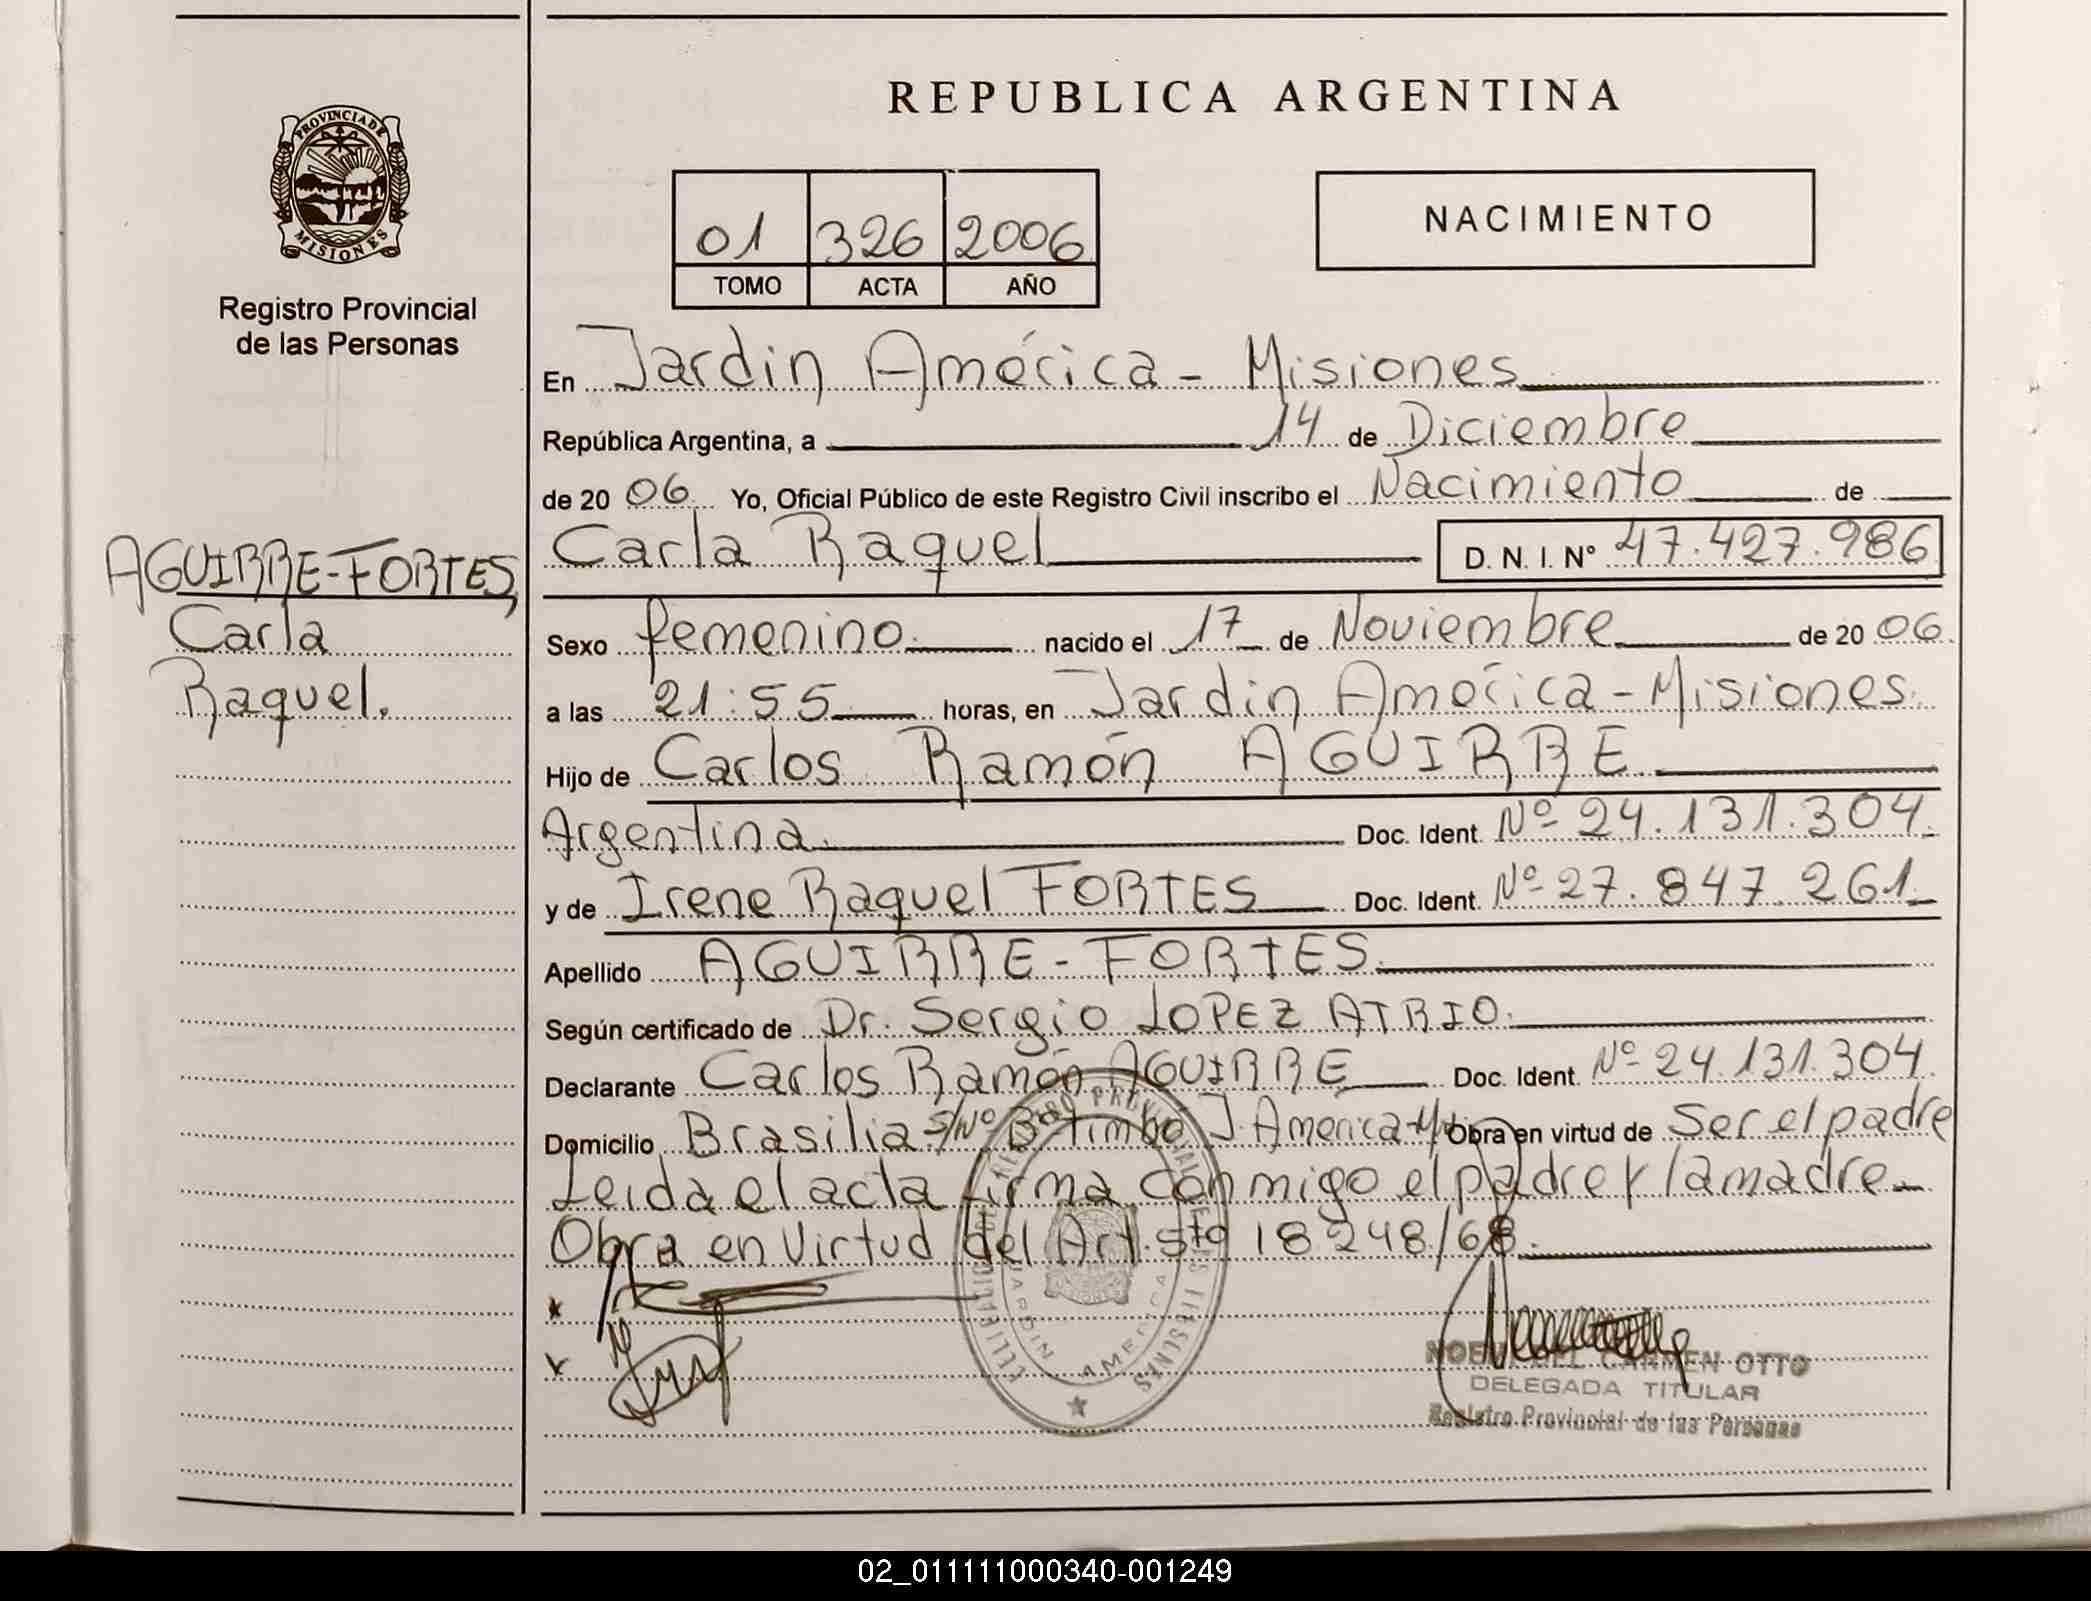 REPUBLICA ARGENTINA
PROVINCIA DE
MISIONES
Registro Provincial
de las Personas
01 326 2006
TOMO ACTA AÑO
NACIMIENTO
En Jardin América - Misiones
República Argentina, a 14 de Diciembre
de 20 06 Yo, Oficial Público de este Registro Civil inscribo el Nacimiento de
AGUIRRE-FORTES,
Carla
Raquel.
Carla Raquel D. N. I. Nº 47.427.986
Sexo femenino nacido el 17 de Noviembre de 20 06
a las 21:55 horas, en Jardin América - Misiones
Hijo de Carlos Ramón AGUIRRE
Argentina Doc. Ident. Nº 24.131.304
y de Irene Raquel FORTES Doc. Ident. Nº 27.847.261
Apellido AGUIRRE - FORTES
Según certificado de Dr. Sergio LOPEZ ATRIO
Declarante Carlos Ramón AGUIRRE Doc. Ident. Nº 24.131.304
Domicilio Brasilia S/Nº Bº Timbo J. America Obra en virtud de Ser el padre
Leida el acta firma conmigo el padre y la madre
Obra en Virtud del Art. 5to 18248/68.
JARDIN AMERICA
NOEMI DEL CARMEN OTTO
DELEGADA TITULAR
Registro Provincial de las Personas
02_011111000340-001249